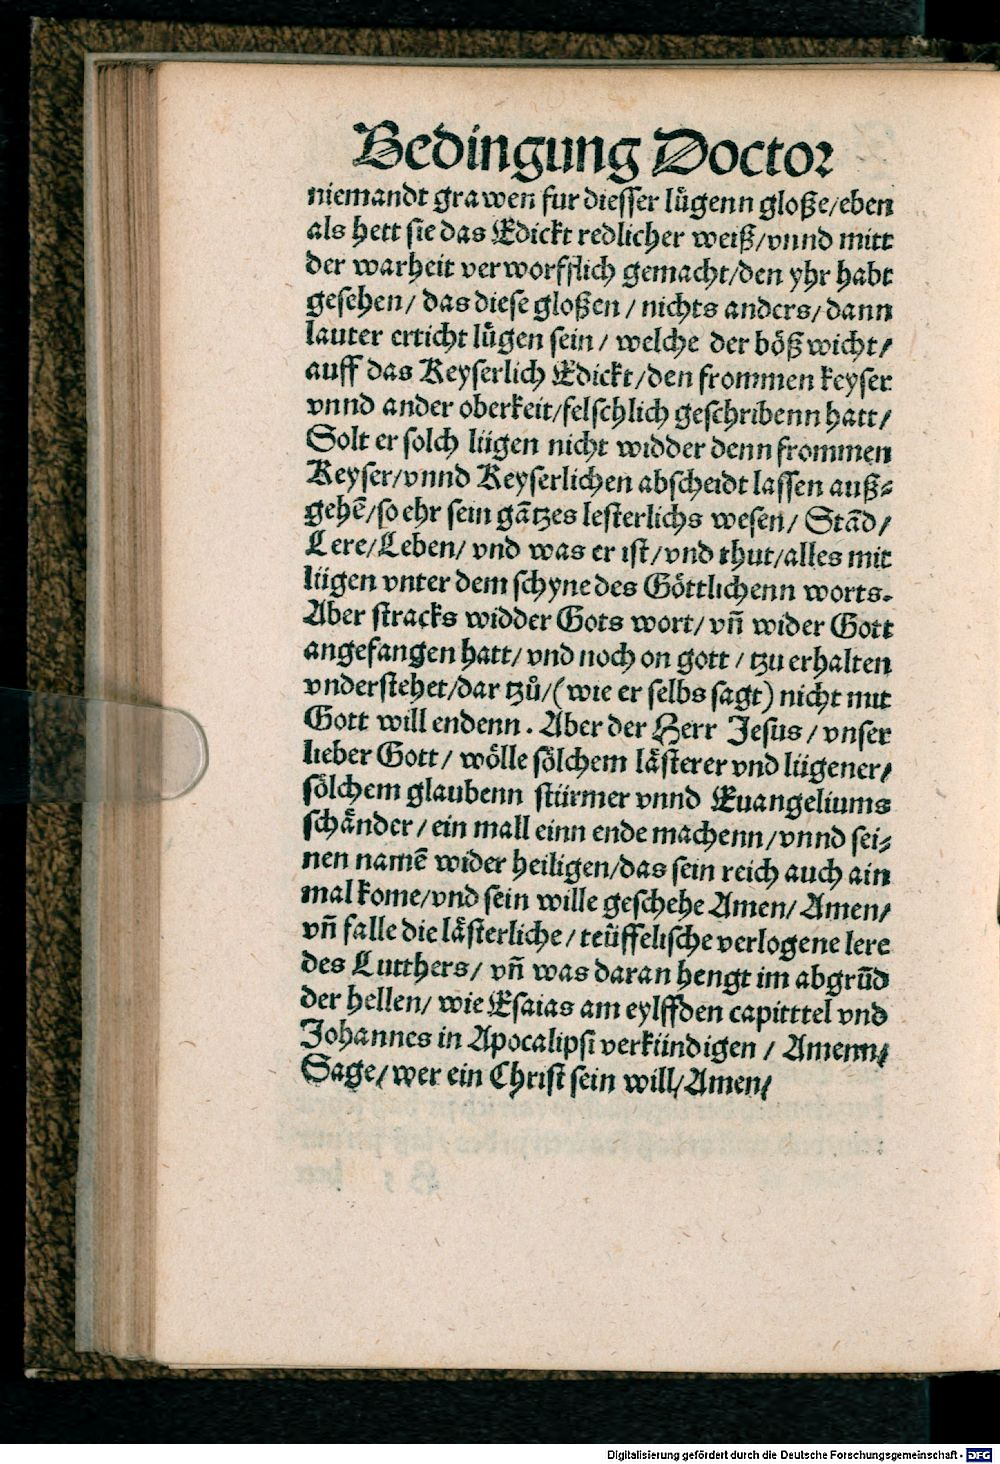 Bedingung Doctor
niemandt grawen fur diesser lůgenn gloße/eben
als hett sie das Edickt redlicher weiß/vnnd mitt
der warheit verworfflich gemacht/den yhr habt
gesehen/ das diese gloßen / nichts anders/dann
lauter erticht lůgen sein / welche der bößwicht/
auff das Keyserlich Edickt/den frommen keyser
vnnd ander oberkeit/felschlich geschribenn hatt/
Solt er solch lügen nicht widder denn frommen
Keyser/vnnd Keyserlichen abscheidt lassen auß⸗
gehē/so ehr sein gātzes lesterlichs wesen/ Stād/
Lere/Leben/ vnd was er ist/vnd thut/alles mit
lügen vnter dem schyne des Göttlichenn worts.
Aber stracks widder Gots wort/ vñ wider Gott
angefangen hatt/ vnd noch on gott / tzu erhalten
vnderstehet/dar tzů/(wie er selbs sagt) nicht mit
Gott will endenn. Aber der Herr Jesus / vnser
lieber Gott/ wölle sölchem lästerer vnd lügener/
sölchem glaubenn stürmer vnnd Euangeliums
schänder/ ein mall einn ende machenn/vnnd sei⸗
nen namē wider heiligen/das sein reich auch ain
mal kome/vnd sein wille geschehe Amen/ Amen/
vñ falle die lästerliche / teüffelische verlogene lere
des Lutthers/ vñ was daran hengt im abgrūd
der hellen/ wie Esaias am eylffden capitttel vnd
Johannes in Apocalipsi verkündigen / Amenn/
Sage/wer ein Christ sein will/Amen/
Digitalisierung gefördert durch die Deutsche Forschungsgemeinschaft - DFG